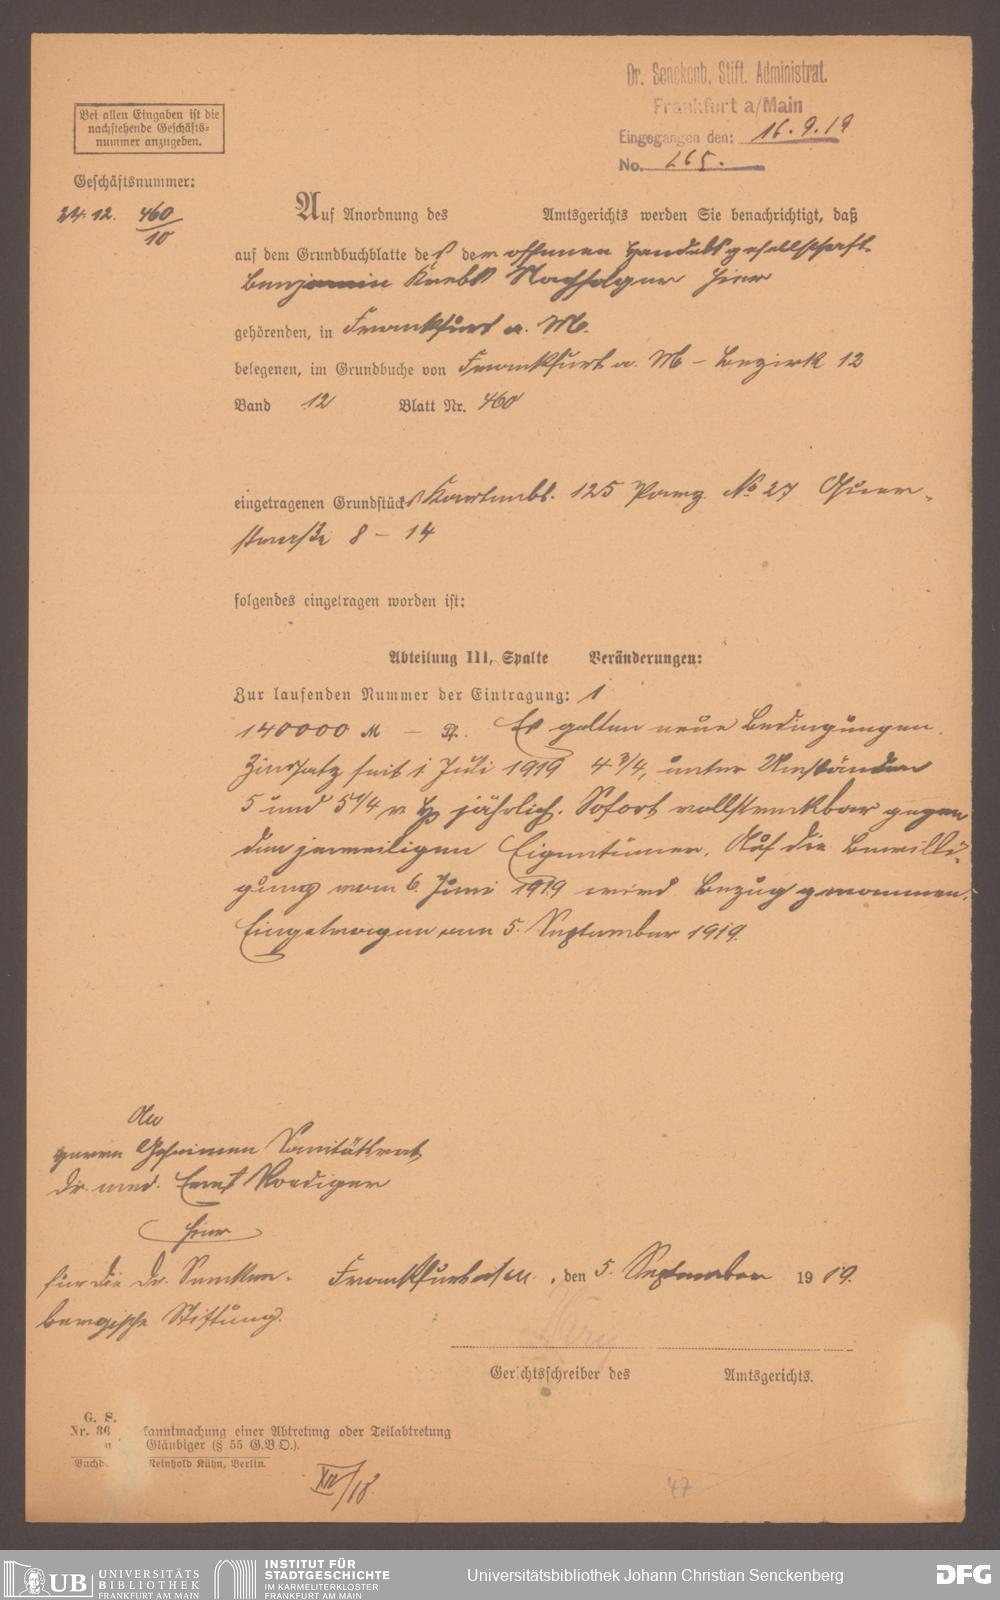 Dr. Senckenb. Stift. Administrat.
Frankfurt a/Main
Eingegangen den: 16.9.19
No. 265.
Bei allen Eingaben ist die
nachstehende Geschäfts-
nummer anzugeben.
Geschäftsnummer:
24. 12. 460/10
Auf Anordnung des Amtsgerichts werden Sie benachrichtigt, daß
auf dem Grundbuchblatte des der offenen Handelsgesellschaft
Benjamin Krebs Nachfolger hier
gehörenden, in Frankfurt a. M.
belegenen, im Grundbuche von Frankfurt a. M – Bezirk 12
Band 12 Blatt Nr. 460
eingetragenen Grundstücks Kartenbl. 125 Parz. No 27 Quer-
straße 8 – 14
folgendes eingetragen worden ist:
Abteilung III, Spalte Veränderungen:
Zur laufenden Nummer der Eintragung: 1
140000 M — Pf. Es gelten neue Bedingungen.
Zinssatz seit 1 Juli 1919 4 3/4, unter Umständen
5 und 5 1/4 v H jährlich. Sofort vollstreckbar gegen
den jeweiligen Eigentümer. Auf die Bewilli-
gung vom 6. Juni 1919 wird Bezug genommen.
Eingetragen am 5. September 1919.
An
Herrn Geheimen Sanitätsrat
Dr. med. Ernst Roediger
hier
für die Dr. Sencken-
bergische Stiftung.
Frankfurt a/M., den 5. September 1919.
Gerichtsschreiber des Amtsgerichts.
G. S.
Nr. 36 kanntmachung einer Abtretung oder Teilabtretung
Gläubiger (§ 55 G.B.O.).
Buchd Reinhold Kühn, Berlin.
XII/18
47
UB UNIVERSITÄTS
BIBLIOTHEK
FRANKFURT AM MAIN
INSTITUT FÜR
STADTGESCHICHTE
IM KARMELITERKLOSTER
FRANKFURT AM MAIN
Universitätsbibliothek Johann Christian Senckenberg
DFG